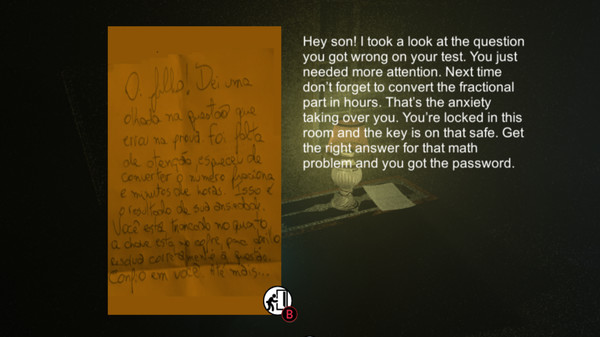 O, filho! Dei uma
olhada na questão que
errou na prova. Foi falta
de atenção, esqueceu de
converter o número fracionário
e minutos de horas. Isso é
o resultado de sua ansiedade.
Você está trancado no quarto
a chave está no cofre, para abri-lo
resolva corretamente a questão.
Confio em você, até mais...
Hey son! I took a look at the question
you got wrong on your test. You just
needed more attention. Next time
don't forget to convert the fractional
part in hours. That's the anxiety
taking over you. You're locked in this
room and the key is on that safe. Get
the right answer for that math
problem and you got the password.
B